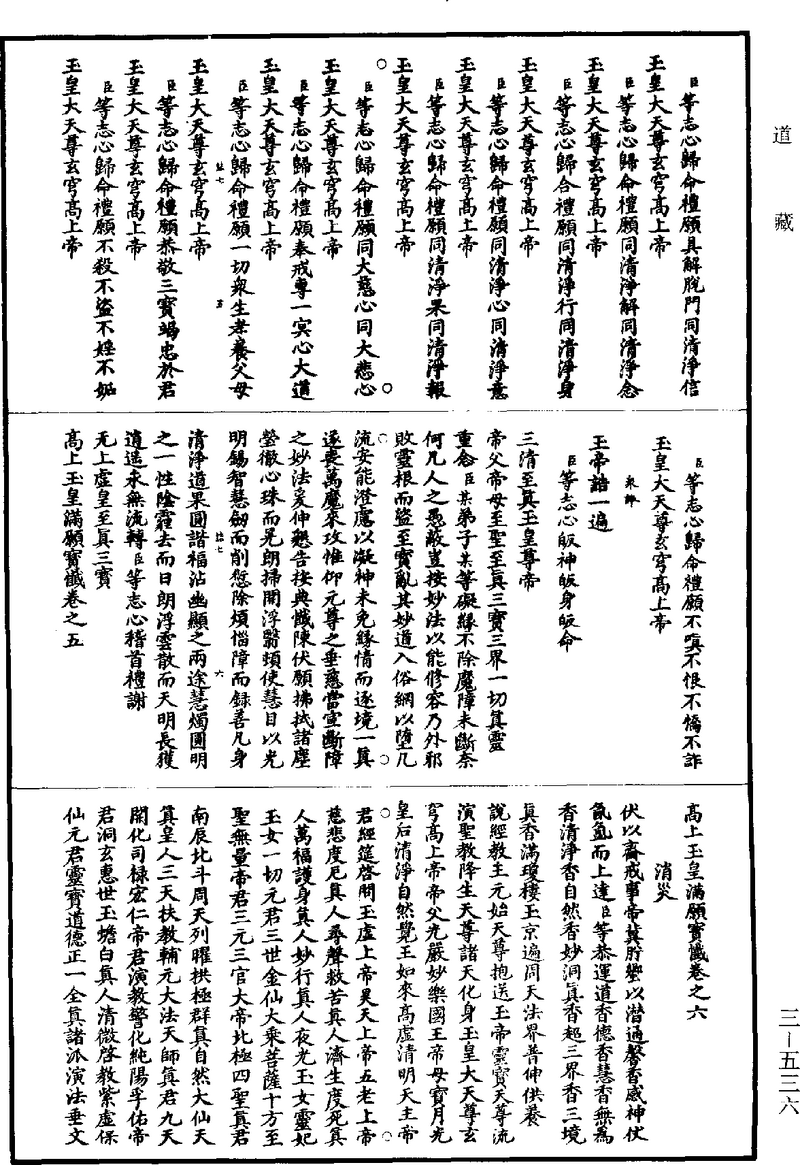 道藏
臣等志心歸命禮願具解脫門同清淨信
玉皇大天尊玄穹高上帝
臣等志心歸命禮願同清淨解同清淨念
玉皇大天尊玄穹高上帝
臣等志心歸命禮願同清淨行同清淨身
玉皇大天尊玄穹高上帝
臣等志心歸命禮願同清淨心同清淨意
玉皇大天尊玄穹高上帝
臣等志心歸命禮願同清淨果同清淨報
玉皇大天尊玄穹高上帝
臣等志心歸命禮願同大慈心同大悲心
玉皇大天尊玄穹高上帝
臣等志心歸命禮願奉戒專一冥心大道
玉皇大天尊玄穹高上帝
臣等志心歸命禮願一切衆生孝養父母
玉皇大天尊玄穹高上帝
臣等志心歸命禮願恭敬三寶竭忠於君
玉皇大天尊玄穹高上帝
臣等志心歸命禮願不殺不盜不婬不妬
玉皇大天尊玄穹高上帝
臣等志心歸命禮願不嗔不恨不憍不詐
玉皇大天尊玄穹高上帝
玉帝誥一遍
臣等志心皈神皈身皈命
三清至眞玉皇尊帝
帝父帝母至聖至眞三寶三界一切眞靈
重念臣某弟子某等礙緣不除魔障未斷奈
何凡人之愚蔽豈按妙法以能修容乃外邪
敗靈根而盜至寶亂其妙道入俗網以墮凡
流安能澄慮以凝神未免緣情而逐境一眞
遂喪萬魔來攻惟仰元尊之垂慈當宣斷障
之妙法爰伸懇告按典懺陳伏願拂拭諸塵
瑩徹心珠而晃朗掃開浮翳頓使慧目以光
明錫智慧劒而削愆除煩惱障而錄善凡身
清淨道果圓諧福沾幽顯之兩途慧燭圓明
之一性陰霾去而日朗浮雲散而天明長獲
逍遥永無流轉臣等志心稽首禮謝
无上虛皇至眞三寶
高上玉皇滿願寶懺卷之五
高上玉皇滿願寶懺卷之六
消災
伏以齋戒事帝蓂貯鬯以潜通馨香感神仗
氤氳而上達臣等恭運道香德香慧香無爲
香清淨香自然香妙洞眞香超三界香三境
眞香滿瓊樓玉京遍周天法界普伸供養
說經教主元始天尊抱送玉帝靈寶天尊流
演聖教降生天尊諸天化身玉皇大天尊玄
穹高上帝帝父光嚴妙樂國王帝母寶月光
皇后清淨自然覺王如來高虛清明天主帝
君經筵啓問玉虛上帝昊天上帝五老上帝
慈悲度厄眞人尋聲救苦眞人濟生度死眞
人萬福護身眞人妙行眞人夜光玉女靈妃
玉女一切元君三世金仙大乘菩薩十方至
聖無量帝君三元三官大帝北極四聖眞君
南辰北斗周天列曜拱極群眞自然大仙天
眞皇人三天扶教輔元大法天師眞君九天
開化司祿宏仁帝君演教警化純陽孚佑帝
君洞玄惠世玉蟾白眞人清微啓教紫虛保
仙元君靈寶道德正一全眞諸派演法垂文
三一五三六